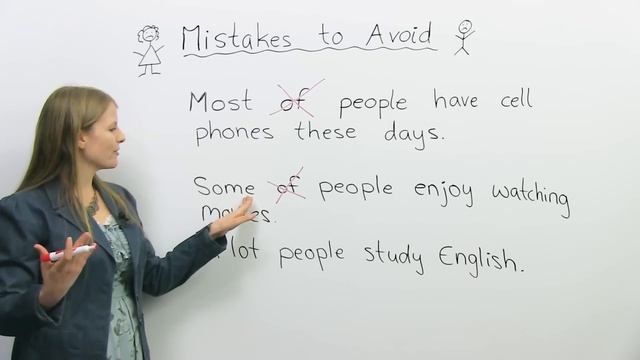 Mistakes to Avoid
Most of people have cell
phones these days.
Some of people enjoy watching
movies.
lot people study English.